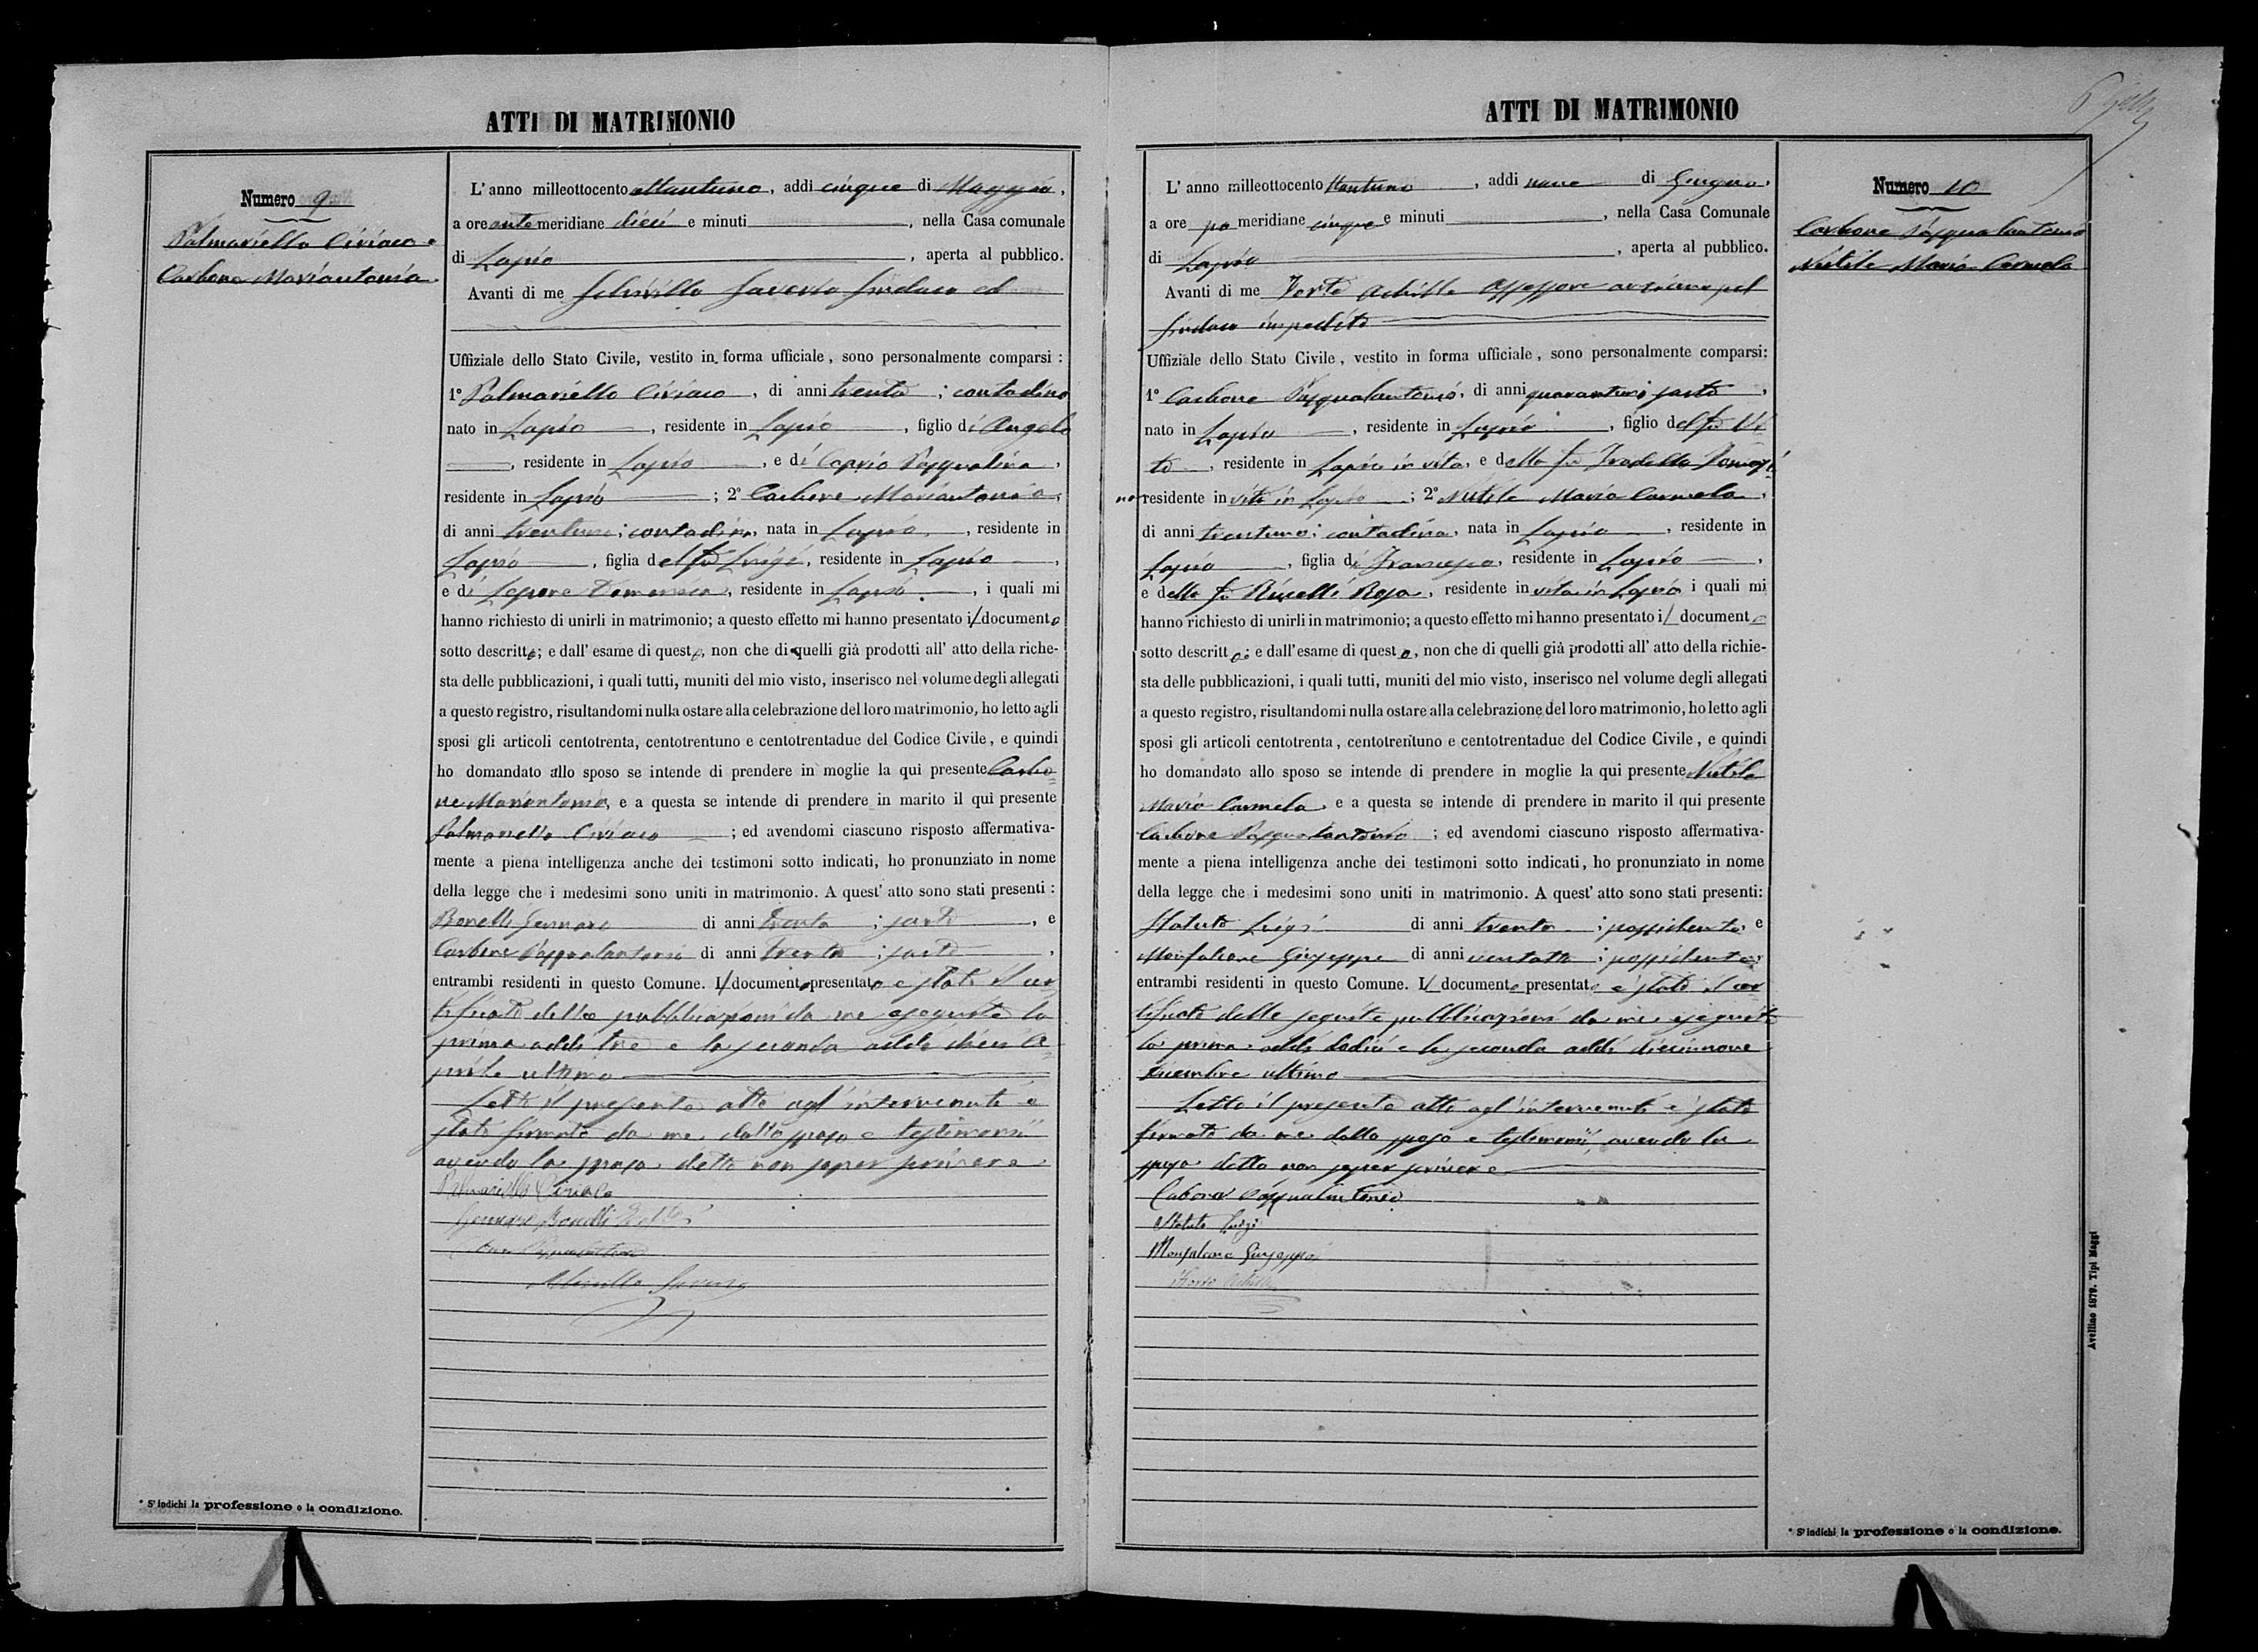 ATTI DI MATRIMONIO
Numero 9
Palmariello Ciriaco e
Carbone Mariantonia
L' anno milleottocento ottantuno, addi cinque di Maggio,
a ore ante meridiane dieci e minuti , nella Casa comunale
di Lapio , aperta al pubblico.
Avanti di me Saverio Sindaco ed
Uffiziale dello Stato Civile, vestito in forma ufficiale, sono personalmente comparsi :
1° Palmariello Ciriaco , di anni trenta ; contadino
nato in Lapio , residente in Lapio , figlio di Angelo
, residente in Lapio , e di Caprio Pasqualina ,
residente in Lapio ; 2° Carbone Mariantonia ,
di anni trentuno ; contadina, nata in Lapio , residente in
Lapio , figlia del fu Luigi, residente in Lapio ,
e di Lepore Domenica, residente in Lapio , i quali mi
hanno richiesto di unirli in matrimonio; a questo effetto mi hanno presentato il documento
sotto descritto; e dall' esame di questo, non che di quelli già prodotti all' atto della riche-
sta delle pubblicazioni, i quali tutti, muniti del mio visto, inserisco nel volume degli allegati
a questo registro, risultandomi nulla ostare alla celebrazione del loro matrimonio, ho letto agli
sposi gli articoli centotrenta, centotrentuno e centotrentadue del Codice Civile, e quindi
ho domandato allo sposo se intende di prendere in moglie la qui presente Carbo-
ne Mariantonia, e a questa se intende di prendere in marito il qui presente
Palmariello Ciriaco ; ed avendomi ciascuno risposto affermativa-
mente a piena intelligenza anche dei testimoni sotto indicati, ho pronunziato in nome
della legge che i medesimi sono uniti in matrimonio. A quest' atto sono stati presenti :
Bonelli Gennaro di anni trenta ; sarto , e
Carbone Pasqualantonio di anni trenta ; sarto ,
entrambi residenti in questo Comune. Il documento presentato è stato il cer-
tificato delle pubblicazioni da me eseguite la
prima addì tre e la seconda addì dieci A-
prile ultimo
Letto il presente atto agl'intervenuti è
stato firmato da me dallo sposo e testimonii
avendo la sposa detto non saper scrivere
Palmariello Ciriaco
Gennaro Bonelli
Saverio
* S' indichi la professione o la condizione.
ATTI DI MATRIMONIO
Numero 10
Carbone Pasqualantonio
Nutile Maria Carmela
L' anno milleottocento ttantuno , addi nove di Giugno,
a ore po meridiane cinque e minuti , nella Casa Comunale
di Lapio , aperta al pubblico.
Avanti di me Forte Achille Assessore anziano pel
Sindaco impedito
Uffiziale dello Stato Civile, vestito in forma ufficiale, sono personalmente comparsi:
1° Carbone Pasqualantonio, di anni quarantuno; sarto ,
nato in Lapio , residente in Lapio , figlio del fu Vi
to , residente in Lapio in vita, e della fu
residente in vita in Lapio ; 2° Nutile Maria Carmela ,
di anni trentuno; contadina, nata in Lapio , residente in
Lapio , figlia di Francesco, residente in Lapio ,
e della fu Rosa, residente in vita in Lapio i quali mi
hanno richiesto di unirli in matrimonio; a questo effetto mi hanno presentato il documento
sotto descritto; e dall' esame di questo, non che di quelli già prodotti all' atto della richie-
sta delle pubblicazioni, i quali tutti, muniti del mio visto, inserisco nel volume degli allegati
a questo registro, risultandomi nulla ostare alla celebrazione del loro matrimonio, ho letto agli
sposi gli articoli centotrenta, centotrentuno e centotrentadue del Codice Civile, e quindi
ho domandato allo sposo se intende di prendere in moglie la qui presente Nutile
Maria Carmela, e a questa se intende di prendere in marito il qui presente
Carbone Pasqualantonio ; ed avendomi ciascuno risposto affermativa-
mente a piena intelligenza anche dei testimoni sotto indicati, ho pronunziato in nome
della legge che i medesimi sono uniti in matrimonio. A quest' atto sono stati presenti:
Statuto Luigi di anni trenta ; possidente, e
Monfalcone Giuseppe di anni ventotto ; possidente,
entrambi residenti in questo Comune. Il documento presentato è stato il cer
tificato delle seguite pubblicazioni da me eseguite
la prima addì dodici e la seconda addì diecinnove
ultimo
Letto il presente atto agl'intervenuti è stato
firmato da me dallo sposo e testimonii, avendo la
sposa detto non saper scrivere
Statuto Luigi
Monfalcone Giuseppe
Forte Achille
* S' indichi la professione o la condizione.
Avellino 1879. Tipi Maggi